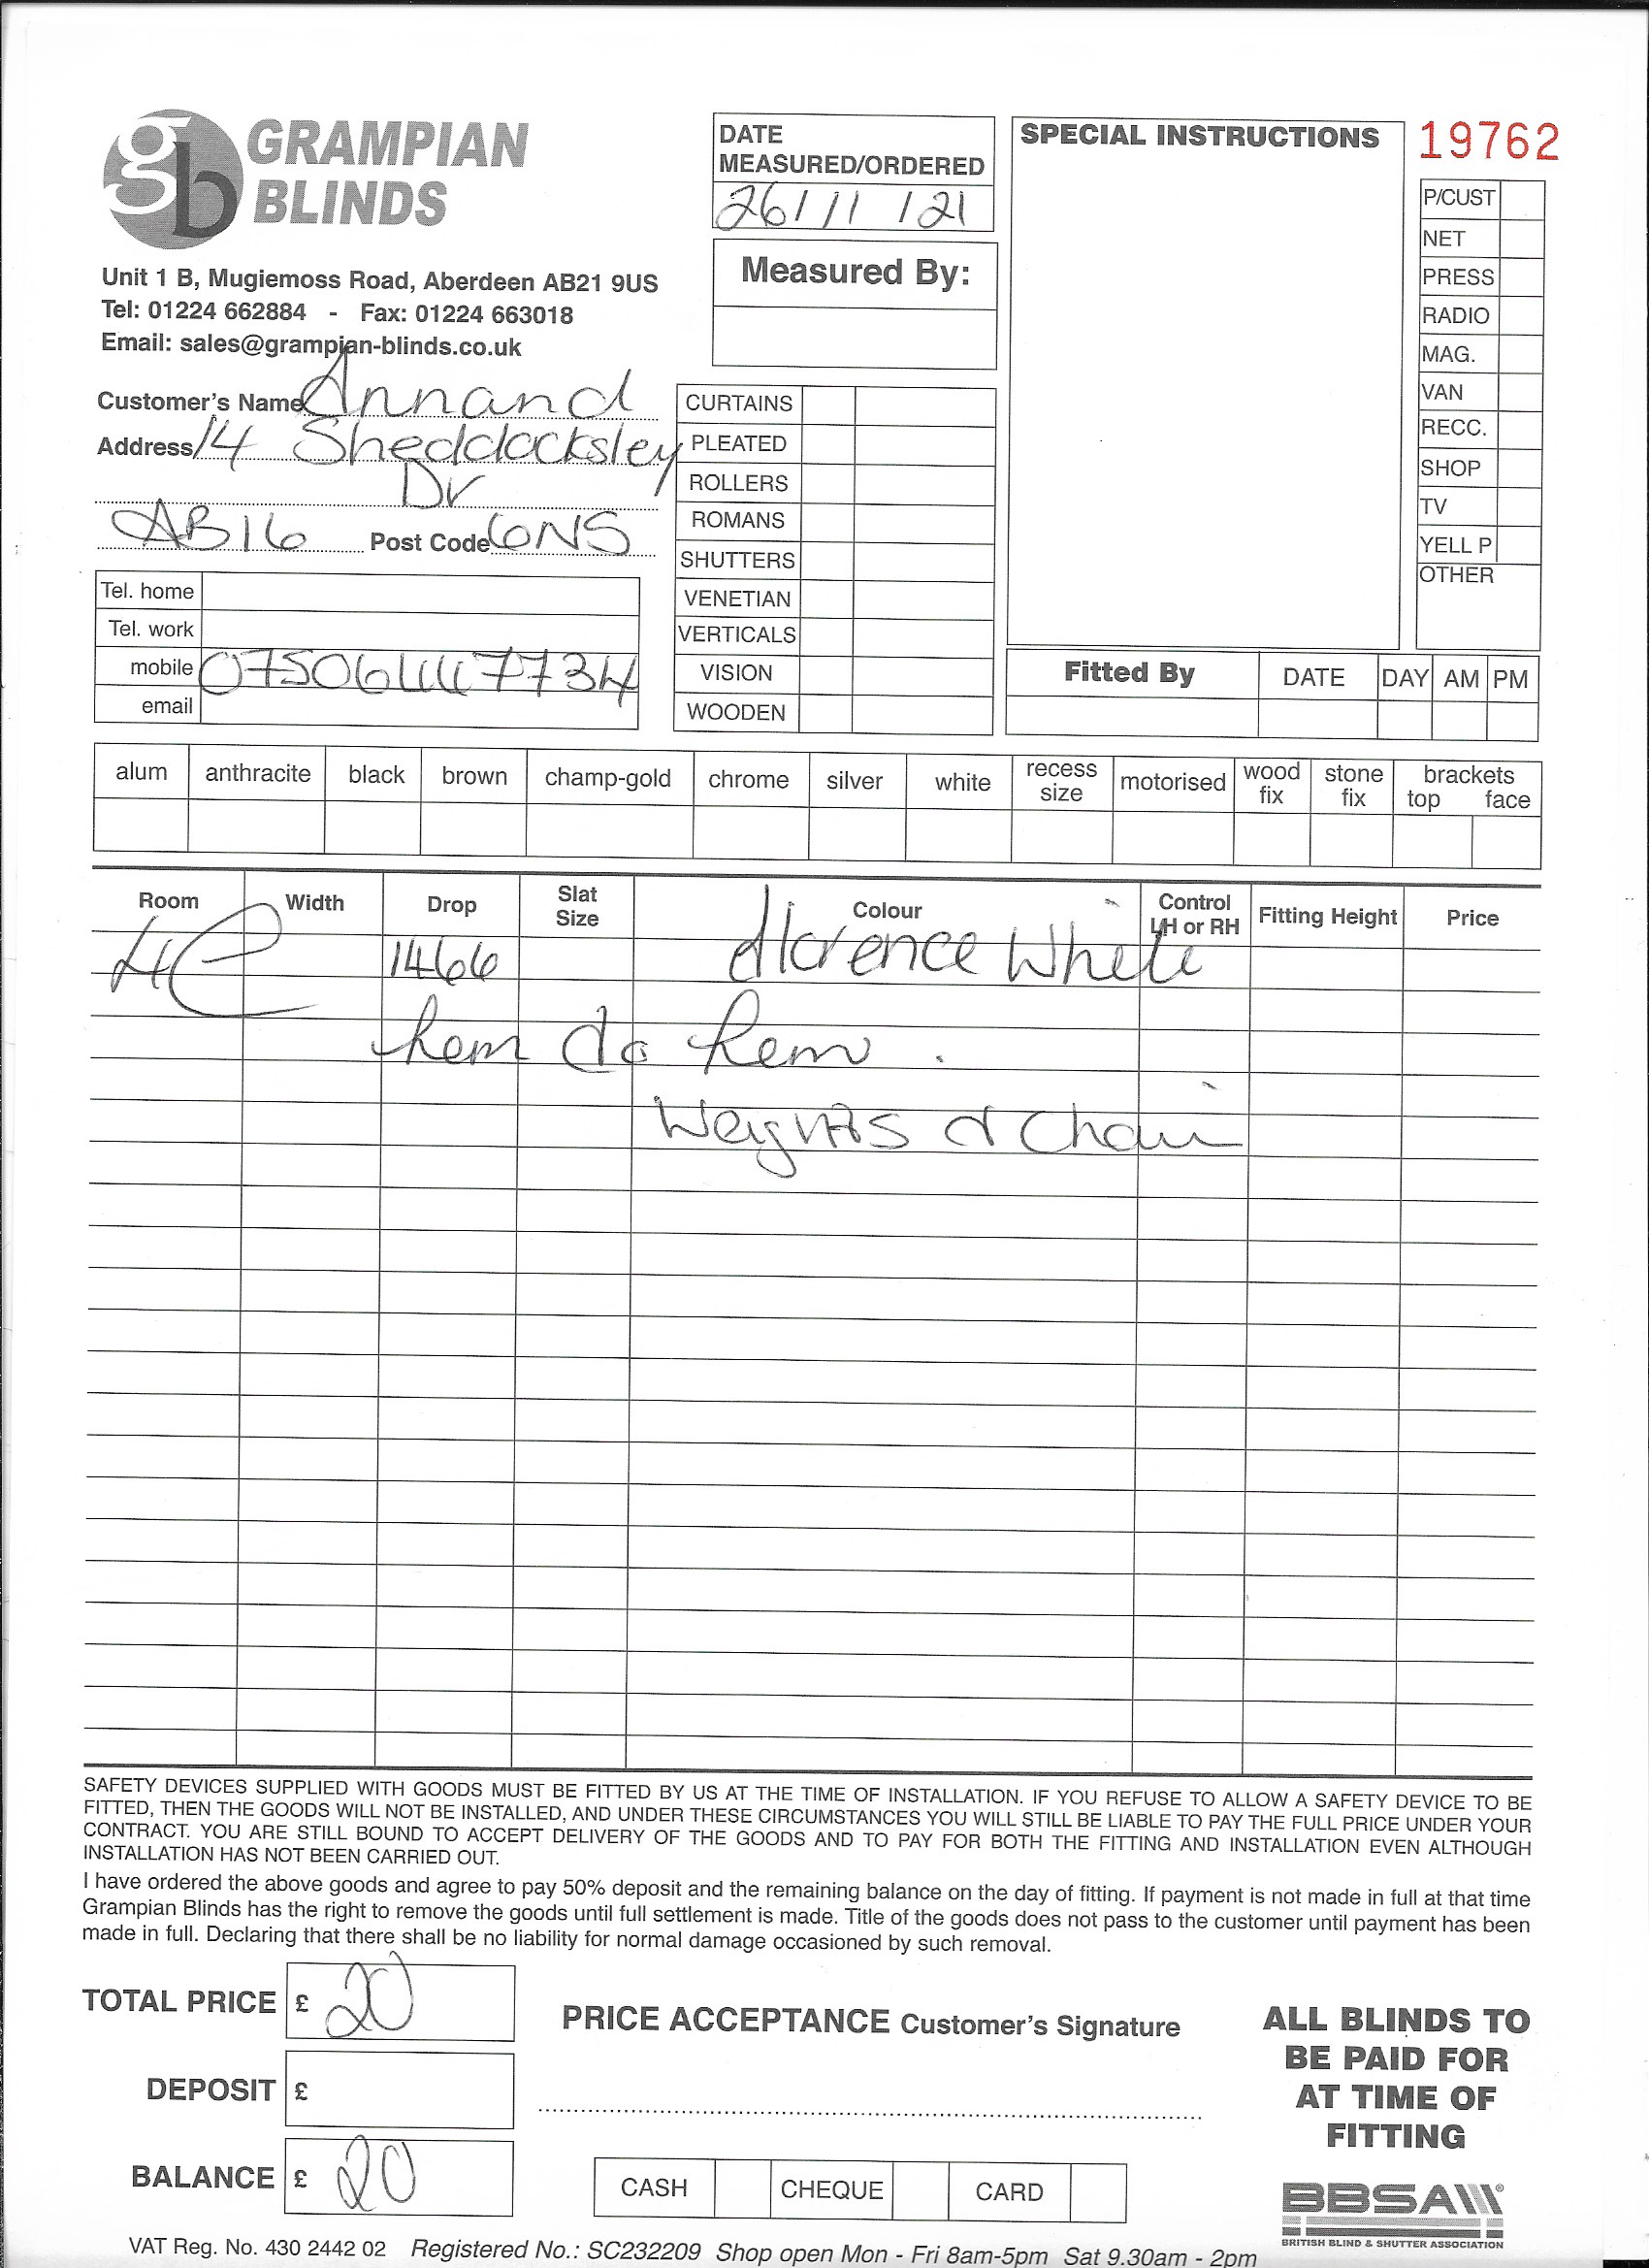 gb GRAMPIAN
BLINDS
Unit 1 B, Mugiemoss Road, Aberdeen AB21 9US
Tel: 01224 662884 - Fax: 01224 663018
Email: sales@grampian-blinds.co.uk
Customer's Name Annand
Address 14 Sheddocksley
Dr
AB16 Post Code 6NS
Tel. home
Tel. work
mobile 07506447734
email
DATE
MEASURED/ORDERED
26/11/21
Measured By:
CURTAINS
PLEATED
ROLLERS
ROMANS
SHUTTERS
VENETIAN
VERTICALS
VISION
WOODEN
SPECIAL INSTRUCTIONS
19762
P/CUST
NET
PRESS
RADIO
MAG.
VAN
RECC.
SHOP
TV
YELL P
OTHER
Fitted By DATE DAY AM PM
alum anthracite black brown champ-gold chrome silver white recess size motorised wood fix stone fix brackets top face
Room Width Drop Slat Size Colour Control LH or RH Fitting Height Price
1466 Florence White
hem to hem.
Weights & Chain
SAFETY DEVICES SUPPLIED WITH GOODS MUST BE FITTED BY US AT THE TIME OF INSTALLATION. IF YOU REFUSE TO ALLOW A SAFETY DEVICE TO BE
FITTED, THEN THE GOODS WILL NOT BE INSTALLED, AND UNDER THESE CIRCUMSTANCES YOU WILL STILL BE LIABLE TO PAY THE FULL PRICE UNDER YOUR
CONTRACT. YOU ARE STILL BOUND TO ACCEPT DELIVERY OF THE GOODS AND TO PAY FOR BOTH THE FITTING AND INSTALLATION EVEN ALTHOUGH
INSTALLATION HAS NOT BEEN CARRIED OUT.
I have ordered the above goods and agree to pay 50% deposit and the remaining balance on the day of fitting. If payment is not made in full at that time
Grampian Blinds has the right to remove the goods until full settlement is made. Title of the goods does not pass to the customer until payment has been
made in full. Declaring that there shall be no liability for normal damage occasioned by such removal.
TOTAL PRICE £ 20
DEPOSIT £
BALANCE £ 20
PRICE ACCEPTANCE Customer's Signature
CASH CHEQUE CARD
ALL BLINDS TO
BE PAID FOR
AT TIME OF
FITTING
BBSA
BRITISH BLIND & SHUTTER ASSOCIATION
VAT Reg. No. 430 2442 02 Registered No.: SC232209 Shop open Mon - Fri 8am-5pm Sat 9.30am - 2pm